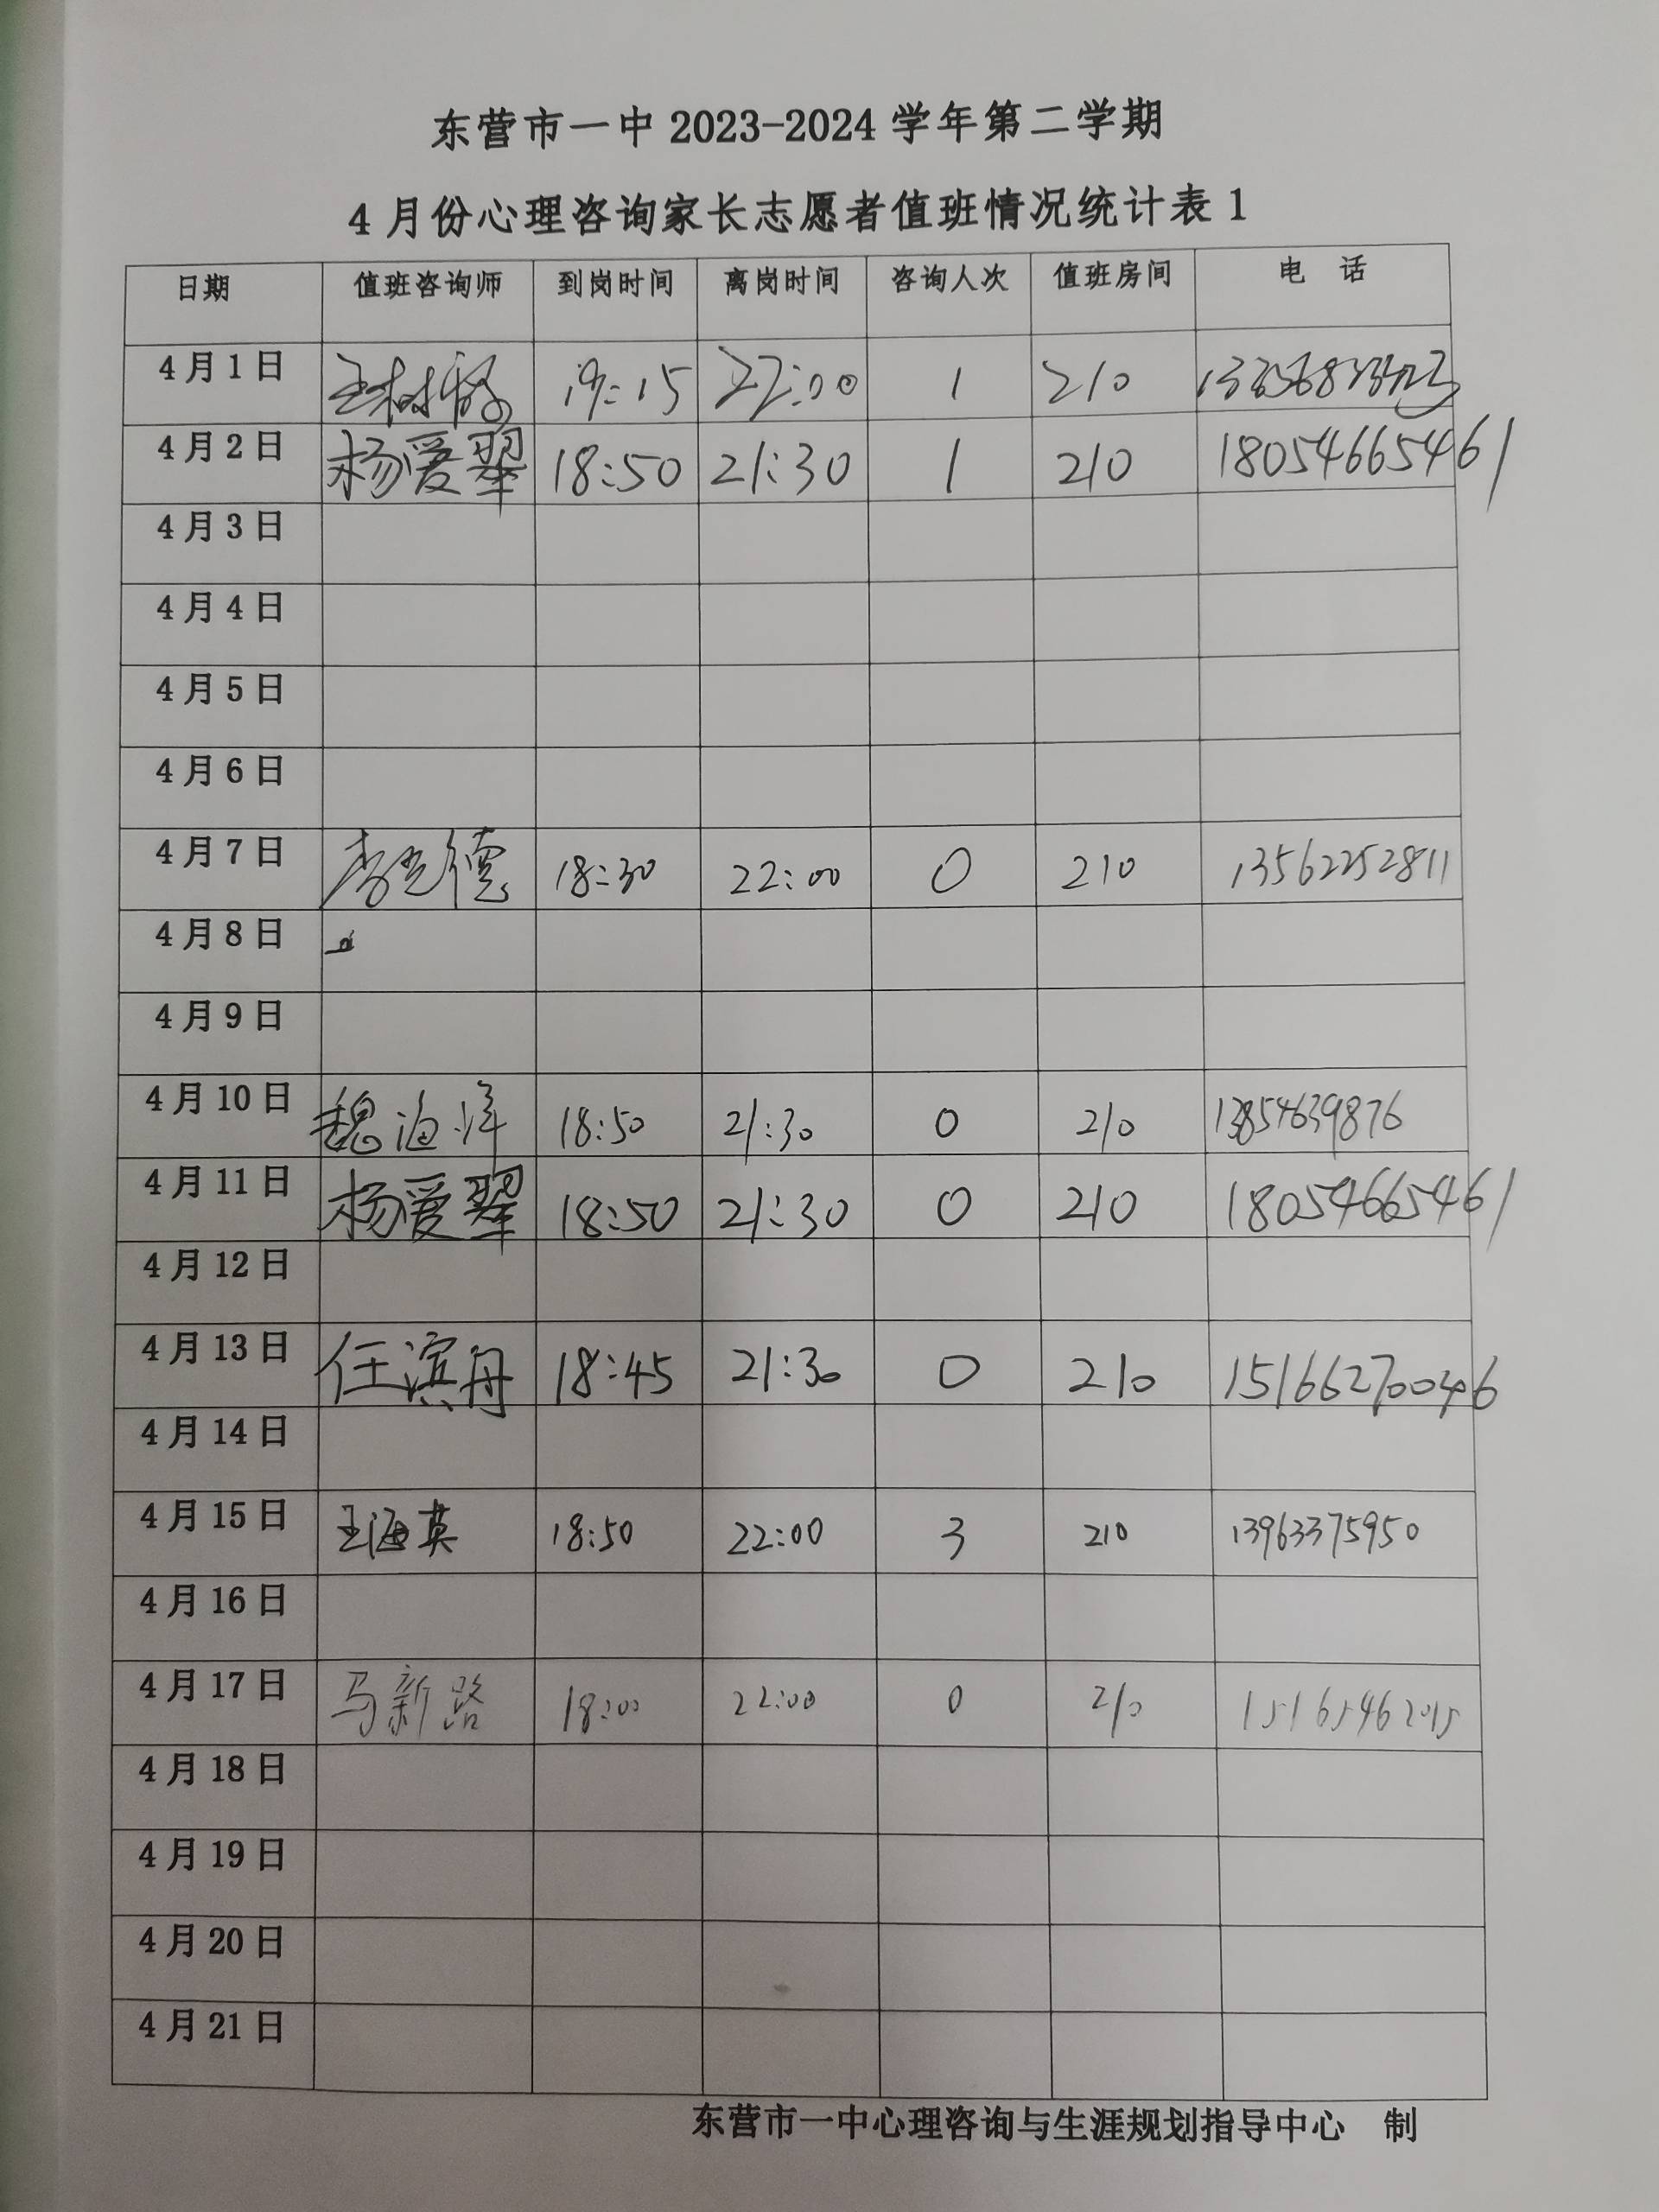 东营市一中 2023-2024 学年第二学期
4 月份心理咨询家长志愿者值班情况统计表 1
日期 值班咨询师 到岗时间 离岗时间 咨询人次 值班房间 电 话
4 月 1 日 19:15 22:00 1 210
4 月 2 日 杨爱翠 18:50 21:30 1 210 18054665461
4 月 3 日
4 月 4 日
4 月 5 日
4 月 6 日
4 月 7 日 18:30 22:00 0 210 13562252811
4 月 8 日
4 月 9 日
4 月 10 日 魏海洋 18:50 21:30 0 210 13854639876
4 月 11 日 杨爱翠 18:50 21:30 0 210 18054665461
4 月 12 日
4 月 13 日 任滨舟 18:45 21:30 0 210
4 月 14 日
4 月 15 日 王海英 18:50 22:00 3 210 13963375950
4 月 16 日
4 月 17 日 马新路 18:00 22:00 0 210
4 月 18 日
4 月 19 日
4 月 20 日
4 月 21 日
东营市一中心理咨询与生涯规划指导中心 制